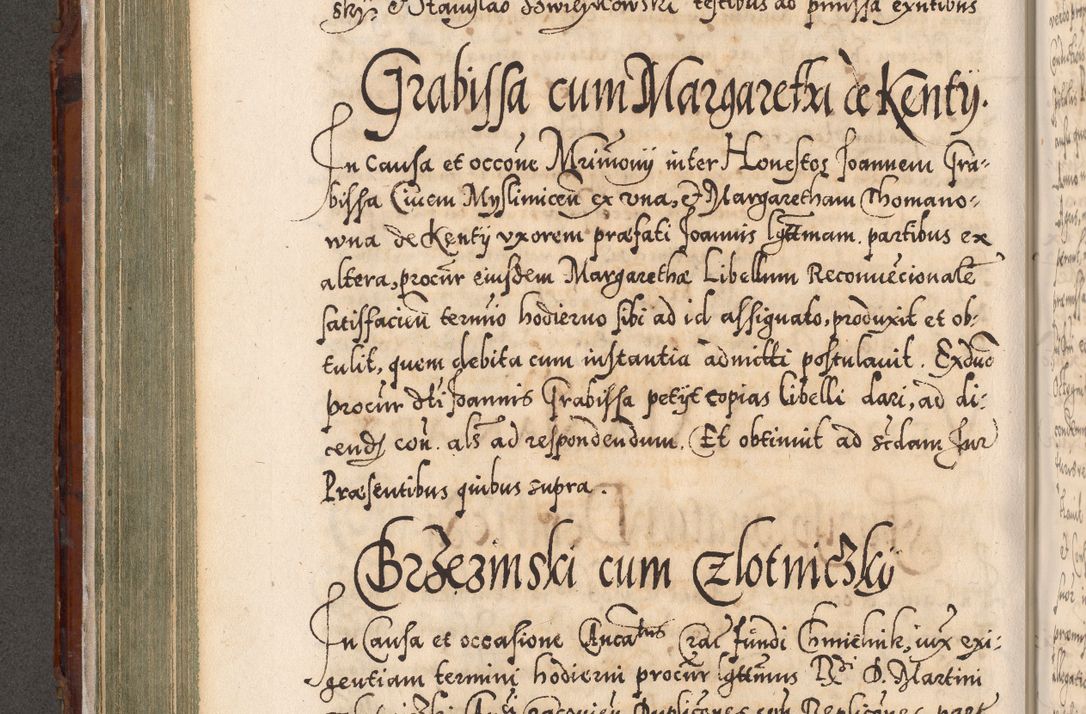 sky. et Stanislao testibus ad pmissa exntibus
Grabissa cum Margaretha de Kenty.
In Causa et occone Mrimonij inter Honestos Joannem Gra-
bissa Ciuem Myslimicen ex vna, et Margaretham Thomano-
wna de Kenty vxorem præfati Joannis lgttmam. partibus ex
altera, procur eiusdem Margarethæ Libellum Reconuecionale
satisfacien termino hodierno sibi ad id assignato, produxit et ob-
tulit, quem debita cum instantia admitti postulauit. Exduo
procur dti Joannis Grabissa petijt copias libelli dari, ad di-
cend con. als ad respondendum. Et obtinuit ad scdam Jur
Præsentibus quibus supra.
Brzezinski cum Zlotniczky
In Causa et occasione Ancatus rae fundi Chmielnik, iux exi-
gentiam termini hodierni procur lgttimus Rdi D. Martini
Duplicones con Replicones part